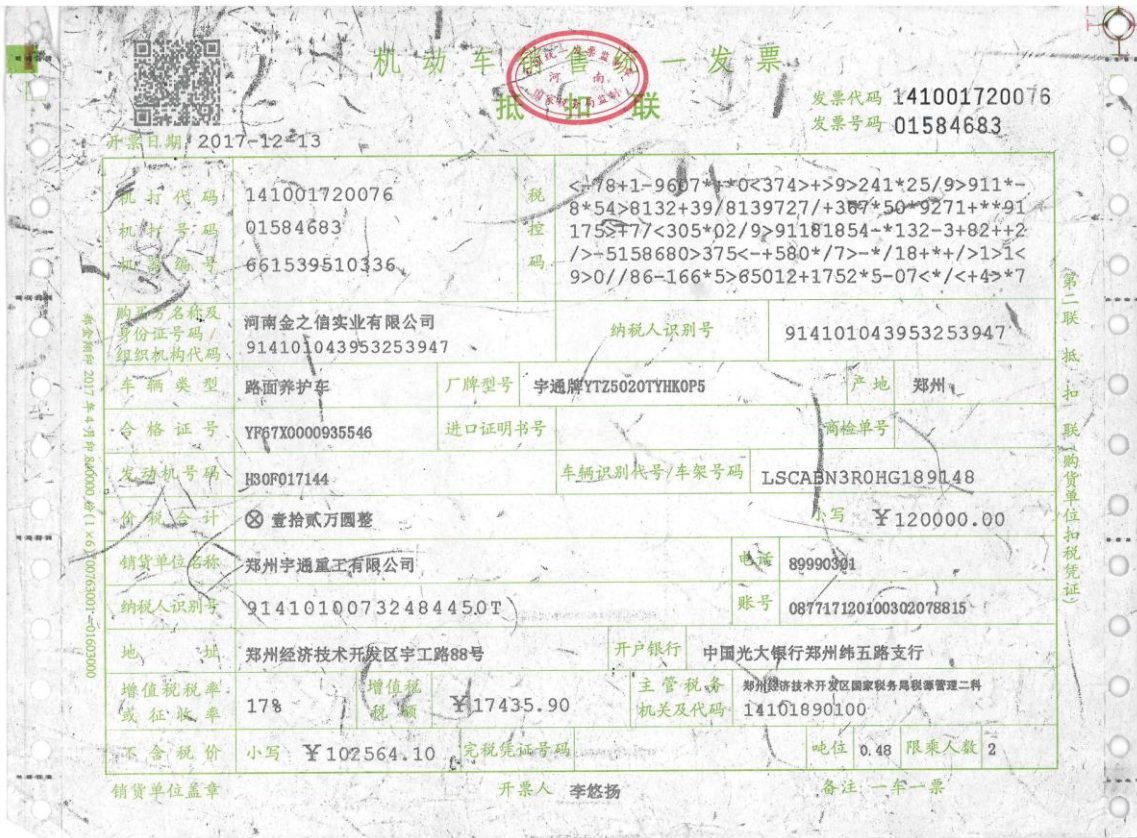 机动车销售统一发票
抵扣联
发票代码 141001720076
发票号码 01584683
开票日期 2017-12-13
机打代码 141001720076
机打号码 01584683
机器编号 661539510336
税控码
<-78+1-9607*+*0<374>+>9>241*25/9>911*-
8*54>8132+39/8139727/+367*50*9271+**91
175>+7/<305*02/9>91181854-*132-3+82++2
/>-5158680>375<-+580*/7>-*/18+*+/>1>1<
9>0//86-166*5>65012+1752*5-07<*/<+4>*7
购买方名称及
身份证号码/
组织机构代码
河南金之信实业有限公司
914101043953253947
纳税人识别号 914101043953253947
车辆类型 路面养护车 厂牌型号 宇通牌YTZ5020TYHK0P5 产地 郑州
合格证号 YF67X0000935546 进口证明书号 商检单号
发动机号码 H30F017144 车辆识别代号/车架号码 LSCABN3R0HG189148
价税合计 ⊗ 壹拾贰万圆整 小写 ¥120000.00
销货单位名称 郑州宇通重工有限公司 电话 89990301
纳税人识别号 91410100732484450T 账号 087717120100302078815
地址 郑州经济技术开发区宇工路88号 开户银行 中国光大银行郑州纬五路支行
增值税税率
或征收率
17%
增值税
税额
¥17435.90
主管税务
机关及代码
郑州经济技术开发区国家税务局税源管理二科
14101890100
不含税价 小写 ¥102564.10 完税凭证号码 吨位 0.48 限乘人数 2
销货单位盖章 开票人 李悠扬 备注:一车一票
第二联 抵扣联(购货单位扣税凭证)